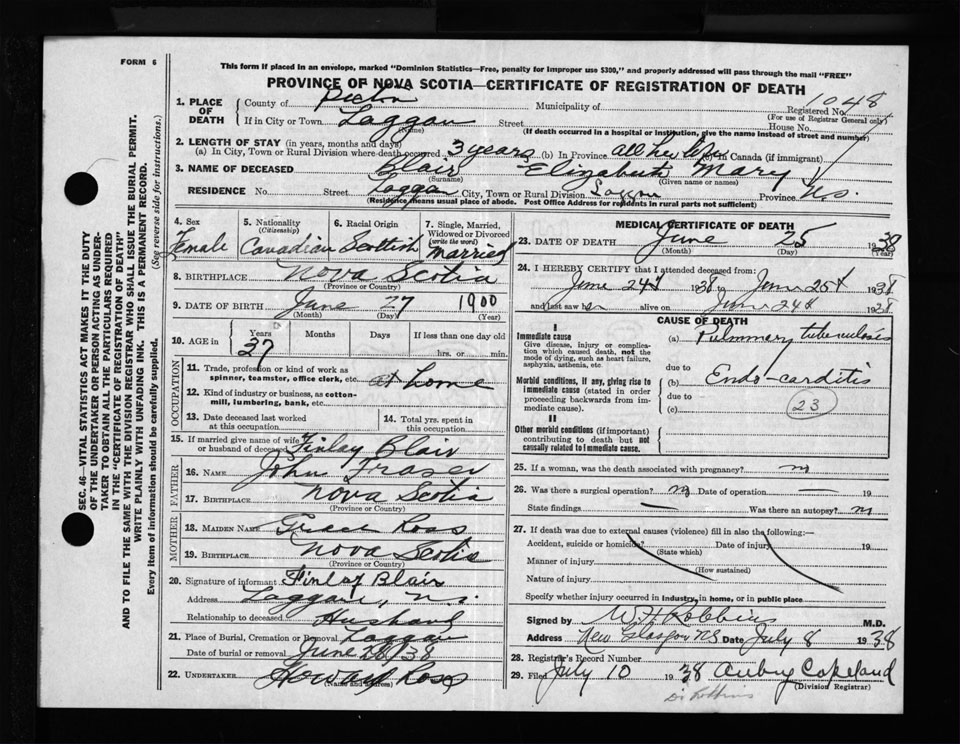 FORM 6
This form if placed in an envelope, marked "Dominion Statistics—Free, penalty for improper use $300," and properly addressed will pass through the mail "FREE"
PROVINCE OF NOVA SCOTIA—CERTIFICATE OF REGISTRATION OF DEATH
1. PLACE OF DEATH County of Pictou Municipality of Registered No. 1048
(For use of Registrar General only)
If in City or Town Laggan Street House No.
(Name) (If death occurred in a hospital or institution, give the name instead of street and number)
2. LENGTH OF STAY (in years, months and days)
(a) In City, Town or Rural Division where death occurred 3 years (b) In Province all her life (c) In Canada (if immigrant)
3. NAME OF DECEASED Blair Elizabeth Mary
(Surname) (Given name or names)
RESIDENCE No. Street Laggan City, Town or Rural Division Laggan Province N.S.
(Residence means usual place of abode. Post Office Address for residents in rural parts not sufficient)
4. Sex Female
5. Nationality (Citizenship) Canadian
6. Racial Origin Scottish
7. Single, Married, Widowed or Divorced (write the word) Married
8. BIRTHPLACE Nova Scotia
(Province or Country)
9. DATE OF BIRTH June 27 1900
(Month) (Day) (Year)
10. AGE in Years 37 Months Days If less than one day old
hrs. or min.
OCCUPATION
11. Trade, profession or kind of work as spinner, teamster, office clerk, etc. at home
12. Kind of industry or business, as cotton-mill, lumbering, bank, etc.
13. Date deceased last worked at this occupation
14. Total yrs. spent in this occupation
15. If married give name of wife or husband of deceased Finlay Blair
FATHER
16. NAME John Fraser
17. BIRTHPLACE Nova Scotia
(Province or Country)
MOTHER
18. MAIDEN NAME Grace Ross
19. BIRTHPLACE Nova Scotia
(Province or Country)
20. Signature of informant Finlay Blair
Address Laggan, N.S.
Relationship to deceased Husband
21. Place of Burial, Cremation or Removal Laggan
Date of burial or removal June 28/38
22. UNDERTAKER Howard Ross
(Name and address)
MEDICAL CERTIFICATE OF DEATH
23. DATE OF DEATH June 25 1938
(Month) (Day) (Year)
24. I HEREBY CERTIFY that I attended deceased from:
June 24 1938 to June 25 1938
and last saw her alive on June 24 1938
CAUSE OF DEATH
I
Immediate cause
Give disease, injury or complication which caused death, not the mode of dying, such as heart failure, asphyxia, asthenia, etc.
(a) Pulmonary tuberculosis
due to
Morbid conditions, if any, giving rise to immediate cause (stated in order proceeding backwards from immediate cause).
(b) Endo-carditis
due to
(c)
23
II
Other morbid conditions (if important) contributing to death but not causally related to immediate cause.
25. If a woman, was the death associated with pregnancy? no
26. Was there a surgical operation? no Date of operation — 19
State findings — Was there an autopsy? no
27. If death was due to external causes (violence) fill in also the following:—
Accident, suicide or homicide? Date of injury 19
(State which)
Manner of injury
(How sustained)
Nature of injury
Specify whether injury occurred in industry, in home, or in public place
Signed by W H Robbins M.D.
Address New Glasgow NS Date July 8 1938
28. Registrar's Record Number
29. Filed July 10 1938 Aubrey Copeland
(Division Registrar)
Dr Robbins
SEC. 46—VITAL STATISTICS ACT MAKES IT THE DUTY
OF THE UNDERTAKER OR PERSON ACTING AS UNDER-
TAKER TO OBTAIN ALL THE PARTICULARS REQUIRED
IN THE "CERTIFICATE OF REGISTRATION OF DEATH"
AND TO FILE THE SAME WITH THE DIVISION REGISTRAR WHO SHALL ISSUE THE BURIAL PERMIT.
WRITE PLAINLY WITH UNFADING INK. THIS IS A PERMANENT RECORD.
Every item of information should be carefully supplied. (See reverse side for instructions.)